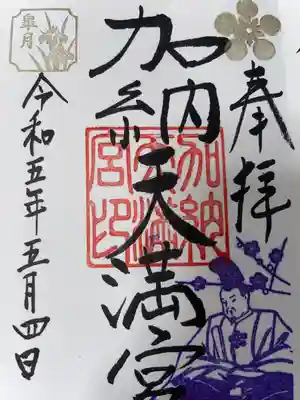 奉拝
加納天満宮
加納天満宮印
皐月
令和五年五月四日